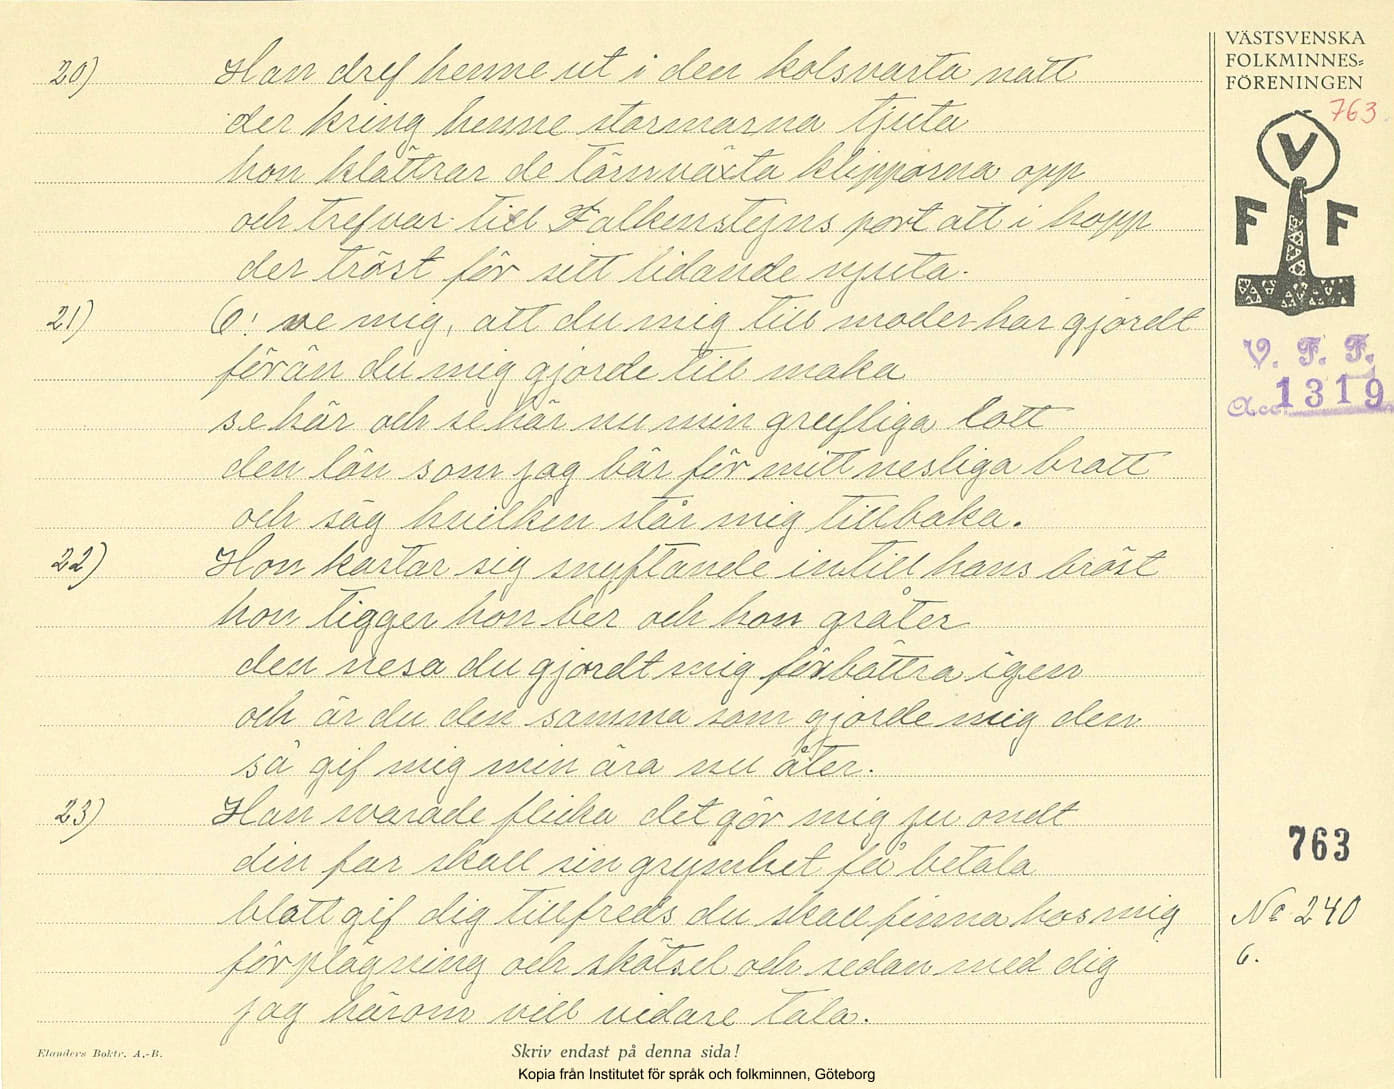 20) Han dref henne ut i den kolsvarta natt
der kring henne stormarna tjuta
hon klättrar de törnväxta klipporna opp
och trefvar till Falkenstejns port att i hopp
der tröst för sitt lidande njuta.
21) O! ve mig, att du mig till moder har gjordt
förän du mig gjorde till maka
se här och se här nu min grufliga lott
den lön som jag bär för mitt nesliga brott
och säg hvilken står mig tillbaka.
22) Hon kastar sig snyftande intill hans bröst
hon tigger hon ber och hon gråter
den nesa du gjordt mig förbättra igen
och är du den samma som gjorde mig den
så gif mig min ära nu åter.
23) Han svarade flicka det gör mig ju ondt
din far skall sin grymhet få betala
blott gif dig tillfreds du skall finna hos mig
förplägning och skötsel och sedan med dig
jag härom vill vidare tala.
VÄSTSVENSKA
FOLKMINNES=
FÖRENINGEN
763
V
F F
V. F. F.
Acc. 1319
763
No 240
6.
Elanders Boktr. A.-B.
Skriv endast på denna sida!
Kopia från Institutet för språk och folkminnen, Göteborg